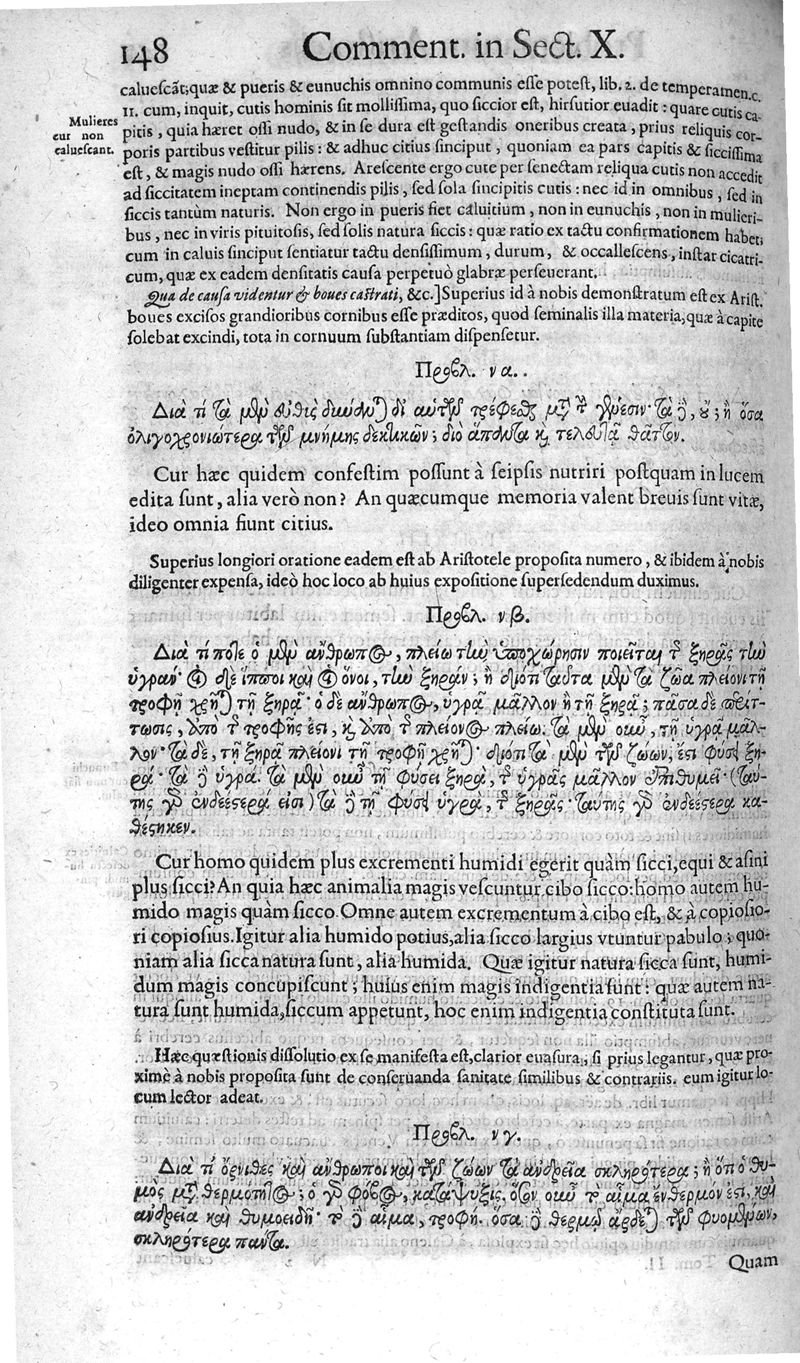 148 Comment. in Sect. X.
caluescāt; quæ & pueris & eunuchis omnino communis esse potest, lib. 2. de temperamen. c.
11. cum, inquit, cutis hominis sit mollissima, quo siccior est, hirsutior euadit: quare cutis ca-
Mulieres cur non caluescant.
pitis, quia hæret ossi nudo, & in se dura est gestandis oneribus creata, prius reliquis cor-
poris partibus vestitur pilis: & adhuc citius sinciput, quoniam ea pars capitis & siccissima
est, & magis nudo ossi hærens. Arescente ergo cute per senectam reliqua cutis non accedit
ad siccitatem ineptam continendis pilis, sed sola sincipitis cutis: nec id in omnibus, sed in
siccis tantùm naturis. Non ergo in pueris fiet caluitium, non in eunuchis, non in mulieri-
bus, nec in viris pituitosis, sed solis natura siccis: quæ ratio ex tactu confirmationem habet;
cum in caluis sinciput sentiatur tactu densissimum, durum, & occallescens, instar cicatri-
cum, quæ ex eadem densitatis causa perpetuò glabræ perseuerant.
Qua de causa videntur & boues castrati, &c.] Superius id à nobis demonstratum est ex Arist.
boues excisos grandioribus cornibus esse præditos, quod seminalis illa materia, quæ à capite
solebat excindi, tota in cornuum substantiam dispensetur.
Προβλ. να..
Διὰ τί τὰ μὲν εὐθὺς δύναται δι' αὑτῶν τρέφεσθαι μετὰ τὴν γένεσιν· τὰ δὲ, οὔ; ἢ ὅσα
ὀλιγοχρονιώτερα τῶν μνήμης δεκτικῶν; διὸ ἅπαντα καὶ τελευτᾷ θᾶττον.
Cur hæc quidem confestim possunt à seipsis nutriri postquam in lucem
edita sunt, alia verò non? An quæcumque memoria valent breuis sunt vitæ,
ideo omnia fiunt citius.
Superius longiori oratione eadem est ab Aristotele proposita numero, & ibidem à nobis
diligenter expensa, ideò hoc loco ab huius expositione supersedendum duximus.
Προβλ. νβ.
Διὰ τί ποτε ὁ μὲν ἄνθρωπος, πλείω τὴν ὑποχώρησιν ποιεῖται τῆς ξηρᾶς τὴν
ὑγράν· οἱ δὲ ἵπποι καὶ οἱ ὄνοι, τὴν ξηράν; ἢ διότι ταῦτα μὲν τὰ ζῶα πλείονι τῇ
τροφῇ χρῆται τῇ ξηρᾷ· ὁ δὲ ἄνθρωπος, ὑγρᾷ μᾶλλον ἢ τῇ ξηρᾷ; πᾶσα δὲ περίτ-
τωσις, ἀπὸ τῆς τροφῆς ἐστι, καὶ ἀπὸ τῆς πλείονος πλείω. τὰ μὲν οὖν, τῇ ὑγρᾷ μᾶλ-
λον· τὰ δὲ, τῇ ξηρᾷ πλείονι τῇ τροφῇ χρῆται· διότι τὰ μὲν τῶν ζώων, ἐστὶ φύσει ξη-
ρά· τὰ δὲ ὑγρά. τὰ μὲν οὖν τῇ φύσει ξηρὰ, τῆς ὑγρᾶς μᾶλλον ἐπιθυμεῖ· (ταύ-
της γὰρ ἐνδεέστερά εἰσι) τὰ δὲ τῇ φύσει ὑγρὰ, τῆς ξηρᾶς· ταύτης γὰρ ἐνδεέστερα κα-
θέστηκεν.
Cur homo quidem plus excrementi humidi egerit quàm sicci, equi & asini
plus sicci? An quia hæc animalia magis vescuntur cibo sicco: homo autem hu-
mido magis quàm sicco. Omne autem excrementum à cibo est, & à copiosio-
ri copiosius. Igitur alia humido potius, alia sicco largius vtuntur pabulo; quo-
niam alia sicca natura sunt, alia humida. Quæ igitur natura sicca sunt, humi-
dum magis concupiscunt; huius enim magis indigentia sunt: quæ autem na-
tura sunt humida, siccum appetunt, hoc enim indigentia constituta sunt.
Hæc quæstionis dissolutio ex se manifesta est, clarior euasura, si prius legantur, quæ pro-
ximè à nobis proposita sunt de conseruanda sanitate similibus & contrariis. eum igitur lo-
cum lector adeat.
Προβλ. νγ.
Διὰ τί ὄρνιθες καὶ ἄνθρωποι καὶ τῶν ζώων τὰ ἀνδρεῖα σκληρότερα; ἢ ὅτι ὁ θυ-
μὸς μετὰ θερμότητος; ὁ γὰρ φόβος, κατάψυξις. ὅσων οὖν τὸ αἷμα ἔνθερμόν ἐστι, καὶ
ἀνδρεῖα καὶ θυμοειδῆ· τὸ δὲ αἷμα, τροφή. ὅσα δὲ θερμῷ ἄρδεται τῶν φυομένων,
σκληρότερα πάντα.
Quam